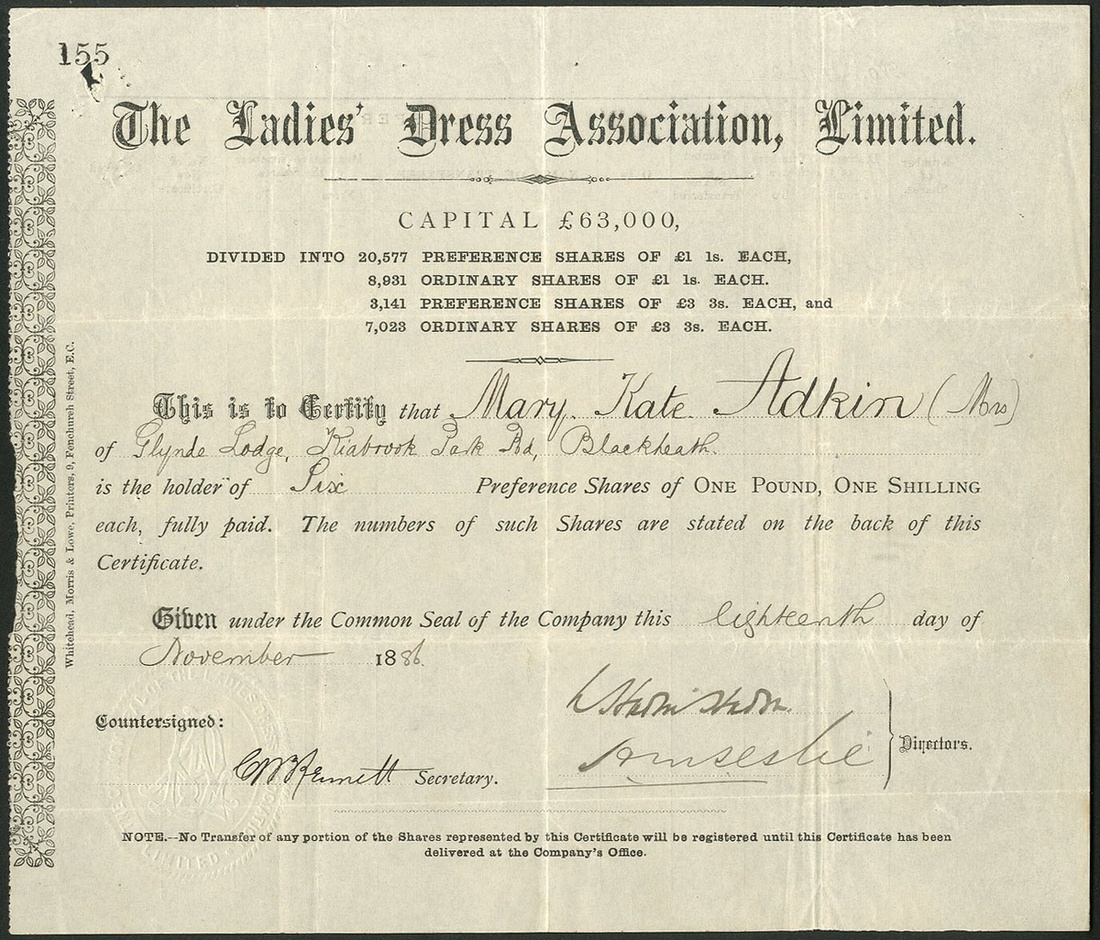 155
The Ladies' Dress Association, Limited.
CAPITAL £63,000,
DIVIDED INTO 20,577 PREFERENCE SHARES OF £1 1s. EACH,
8,931 ORDINARY SHARES OF £1 1s. EACH.
3,141 PREFERENCE SHARES OF £3 3s. EACH, and
7,023 ORDINARY SHARES OF £3 3s. EACH.
This is to Certify that Mary Kate Adkin (Mrs)
of Glynde Lodge, Kidbrook Park Rd, Blackheath.
is the holder of Six Preference Shares of ONE POUND, ONE SHILLING
each, fully paid. The numbers of such Shares are stated on the back of this
Certificate.
Given under the Common Seal of the Company this Eighteenth day of
November 1886.
Countersigned:
Directors.
Secretary.
NOTE.—No Transfer of any portion of the Shares represented by this Certificate will be registered until this Certificate has been
delivered at the Company's Office.
Whitehead, Morris & Lowe, Printers, 9, Fenchurch Street, E.C.